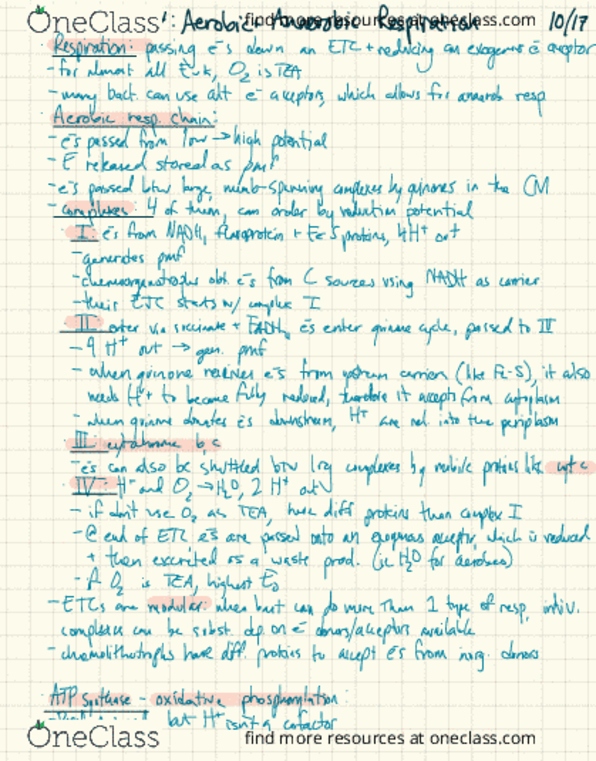 OneClass
find more resources at oneclass.com
: Aerobic + Anaerobic Respiration 10/17
Respiration: passing e⁻s down an ETC + reducing an exogenous e⁻ acceptor
- for almost all Euk, O₂ is TEA
- many bact. can use alt e⁻ acceptors, which allows for anaerob resp
Aerobic resp. chain:
- e⁻s passed from low → high potential
- E released stored as pmf
- e⁻s passed btw large, memb-spanning complexes by quinones in the CM
- complexes: 4 of them, can order by reduction potential
I: e⁻s from NADH, flavoprotein + FeS proteins, 4H⁺ out
- generates pmf
- chemoorganotrophs obt. e⁻s from C sources using NADH as carrier
- their ETC starts w/ complex I
II: enter via succinate + FADH₂, e⁻s enter quinone cycle, passed to IV
- 4 H⁺ out → gen. pmf
- when quinone receives e⁻s from upstream carrier (like Fe-S), it also
needs H⁺ to become fully reduced, therefore it accepts from cytoplasm
- when quinone donates e⁻s downstream, H⁺ are rel. into the periplasm
III: cytochrome b, c
- e⁻s can also be shuttled btw lrg complexes by mobile proteins like cyt c
IV: H⁺ and O₂ → H₂O, 2 H⁺ out
- if don't use O₂ as TEA, have diff proteins than complex I
- @ end of ETC e⁻s are passed onto an exogenous acceptor, which is reduced
+ then excreted as a waste prod. (ie H₂O for aerobes)
- if O₂ is TEA, highest E₀
- ETCs are modular: when bact can do more than 1 type of resp, indiv.
complexes can be subst. dep on e⁻ donors/acceptors available
- chemolithotrophs have diff. proteins to accept e⁻s from inorg. donors
ATP synthase - oxidative phosphorylation:
but H⁺ isn't a cofactor
OneClass
find more resources at oneclass.com